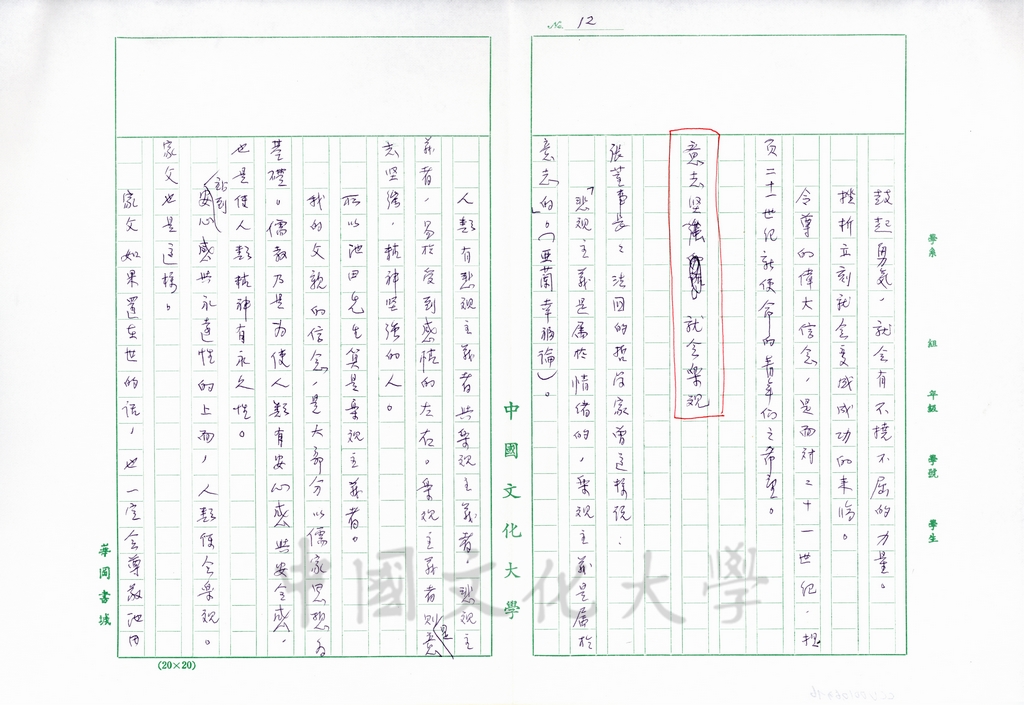 No. 12
鼓起勇氣，就會有不撓不屈的力量。
挫折立刻就會變成成功的來臨。
令尊的偉大信念，是面對二十一世紀．担
負二十一世紀就使命的青年们之希望。
意志坚強 就会樂观
張董事長：法国的哲学家曾這様说：
「悲观主義是属於情绪的，樂观主義是属於
意志的。」（亜蘭幸福論）。
人類有悲观主義者与樂观主義者。悲观主
義者，易於受到感情的左右。樂观主義者則是意
志坚強，精神坚強的人。
所以池田先生算是樂观主義者。
我的父親的信念，是大部分以儒家思想为
基礎。儒教乃是为使人類有安心感與安全感，
也是使人類精神有永久性。
站到安心感与永遠性的上面，人類便会樂观。
家父也是這様。
家父如果還在世的话，也一定会尊敬池田
中國文化大學
學系 組 年級 學號 學生
華岡書城
(20×20)
中國文化大學